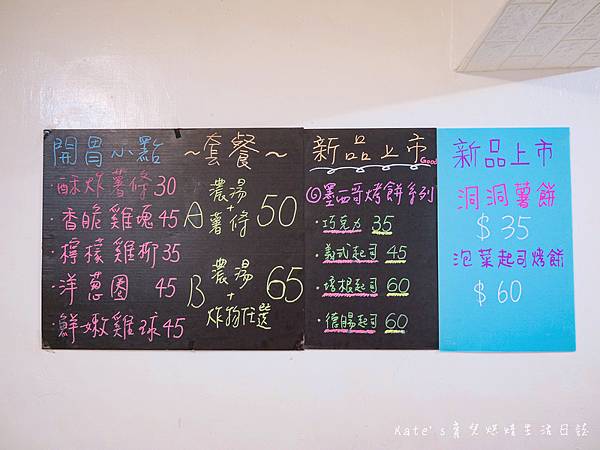 開胃小點
·酥炸薯條30
·香脆雞塊45
·檸檬雞柳35
·洋蔥圈 45
·鮮嫩雞球45
~套餐~
A 濃湯+薯條 50
B 濃湯+炸物任選 65
新品上市
Good
◎墨西哥烤餅系列
·巧克力 35
·義式起司 45
·培根起司 60
·德腸起司 60
新品上市
洞洞薯餅
$35
泡菜起司烤餅
$60
Kate's育兒烘焙生活日誌